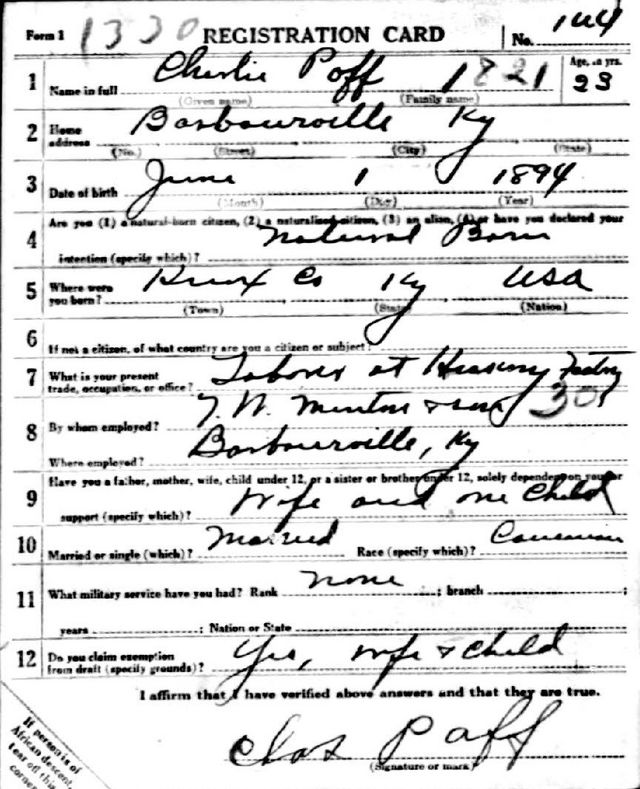 Form 1 1330 REGISTRATION CARD No. 144
1 Name in full Charlie Poff 1821 Age, in yrs. 23
(Given name) (Family name)
2 Home address Barbourville Ky
(No.) (Street) (City) (State)
3 Date of birth June 1 1894
(Month) (Day) (Year)
4 Are you (1) a natural-born citizen, (2) a naturalized citizen, (3) an alien, (4) or have you declared your
intention (specify which)? Natural Born
5 Where were you born? Knox Co Ky USA
(Town) (State) (Nation)
6 If not a citizen, of what country are you a citizen or subject?
7 What is your present trade, occupation, or office? Laborer at Factory
8 By whom employed? T. W. Minton & 30
Where employed? Barbourville, Ky
9 Have you a father, mother, wife, child under 12, or a sister or brother under 12, solely dependent on you for
support (specify which)? Wife and one Child
10 Married or single (which)? Married Race (specify which)? Caucasian
11 What military service have you had? Rank none ; branch
years ; Nation or State
12 Do you claim exemption from draft (specify grounds)? Yes, wife & child
I affirm that I have verified above answers and that they are true.
Chas Poff
(Signature or mark)
If person is of
African descent,
tear off this
corner